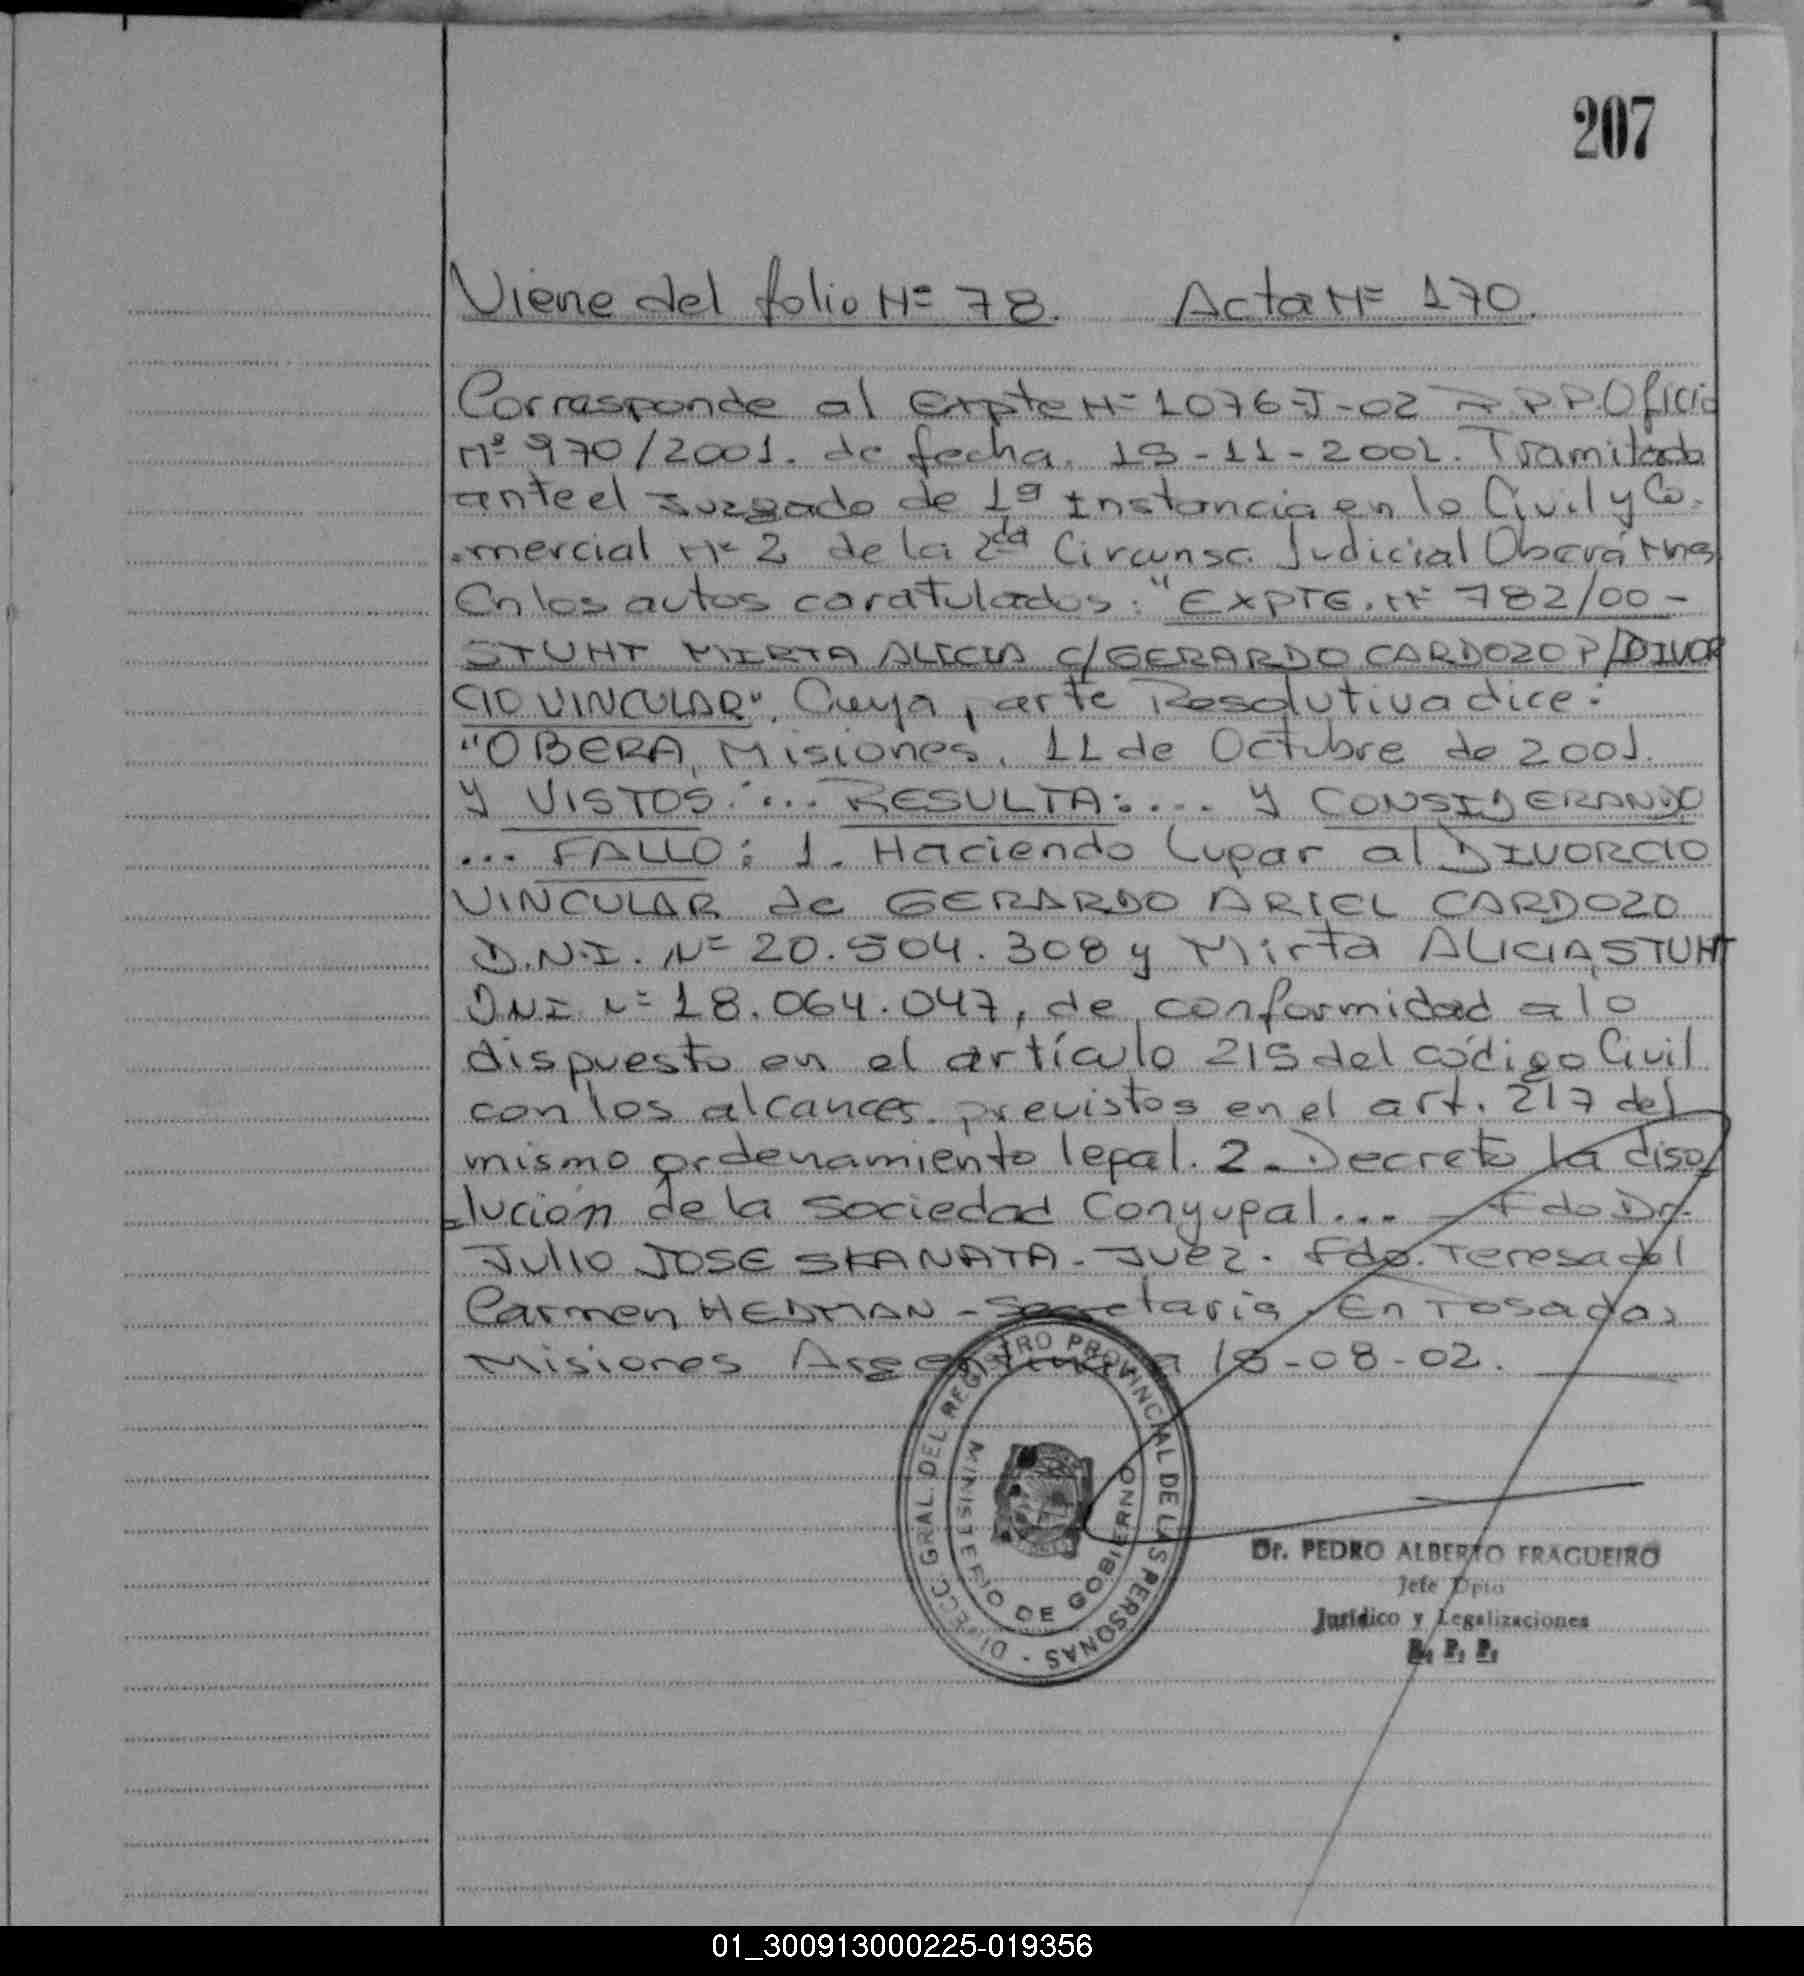 207
Viene del folio Nº 78. Acta Nº 170.
Corresponde al Expte Nº 1076-J-02 R.P.P. Oficio
Nº 970/2001. de fecha. 19-11-2001. Tramitado
ante el Juzgado de 1ª Instancia en lo Civil y Co-
-mercial Nº 2 de la 2da Circunsc. Judicial Oberá Mnes
En los autos caratulados: "EXPTE. Nº 782/00 -
STUHT MIRTA ALICIA C/ GERARDO CARDOZO P/DIVOR
CIO VINCULAR". Cuya parte Resolutiva dice:
"OBERA, Misiones, 11 de Octubre de 2001.
Y VISTOS: ... RESULTA: .... y CONSIDERANDO
... FALLO: 1. Haciendo lugar al DIVORCIO
VINCULAR de GERARDO ARIEL CARDOZO
D.N.I. Nº 20.504.308 y Mirta ALICIA STUHT
DNI Nº 18.064.047, de conformidad a lo
dispuesto en el artículo 215 del código Civil
con los alcances previstos en el art. 217 del
mismo ordenamiento legal. 2- Decreto la diso
-lución de la Sociedad Conyugal... - Fdo Dr.
Julio JOSE SKANATA - Juez. Fdo. Teresa del
Carmen HEDMAN - Secretaria. En Posadas
Misiones Argentina 18-08-02.
DIRECC. GRAL. DEL REGISTRO PROVINCIAL DE LAS PERSONAS -
MINISTERIO DE GOBIERNO
Dr. PEDRO ALBERTO FRAGUEIRO
Jefe Dpto
Jurídico y Legalizaciones
R. P. P.
01_300913000225-019356